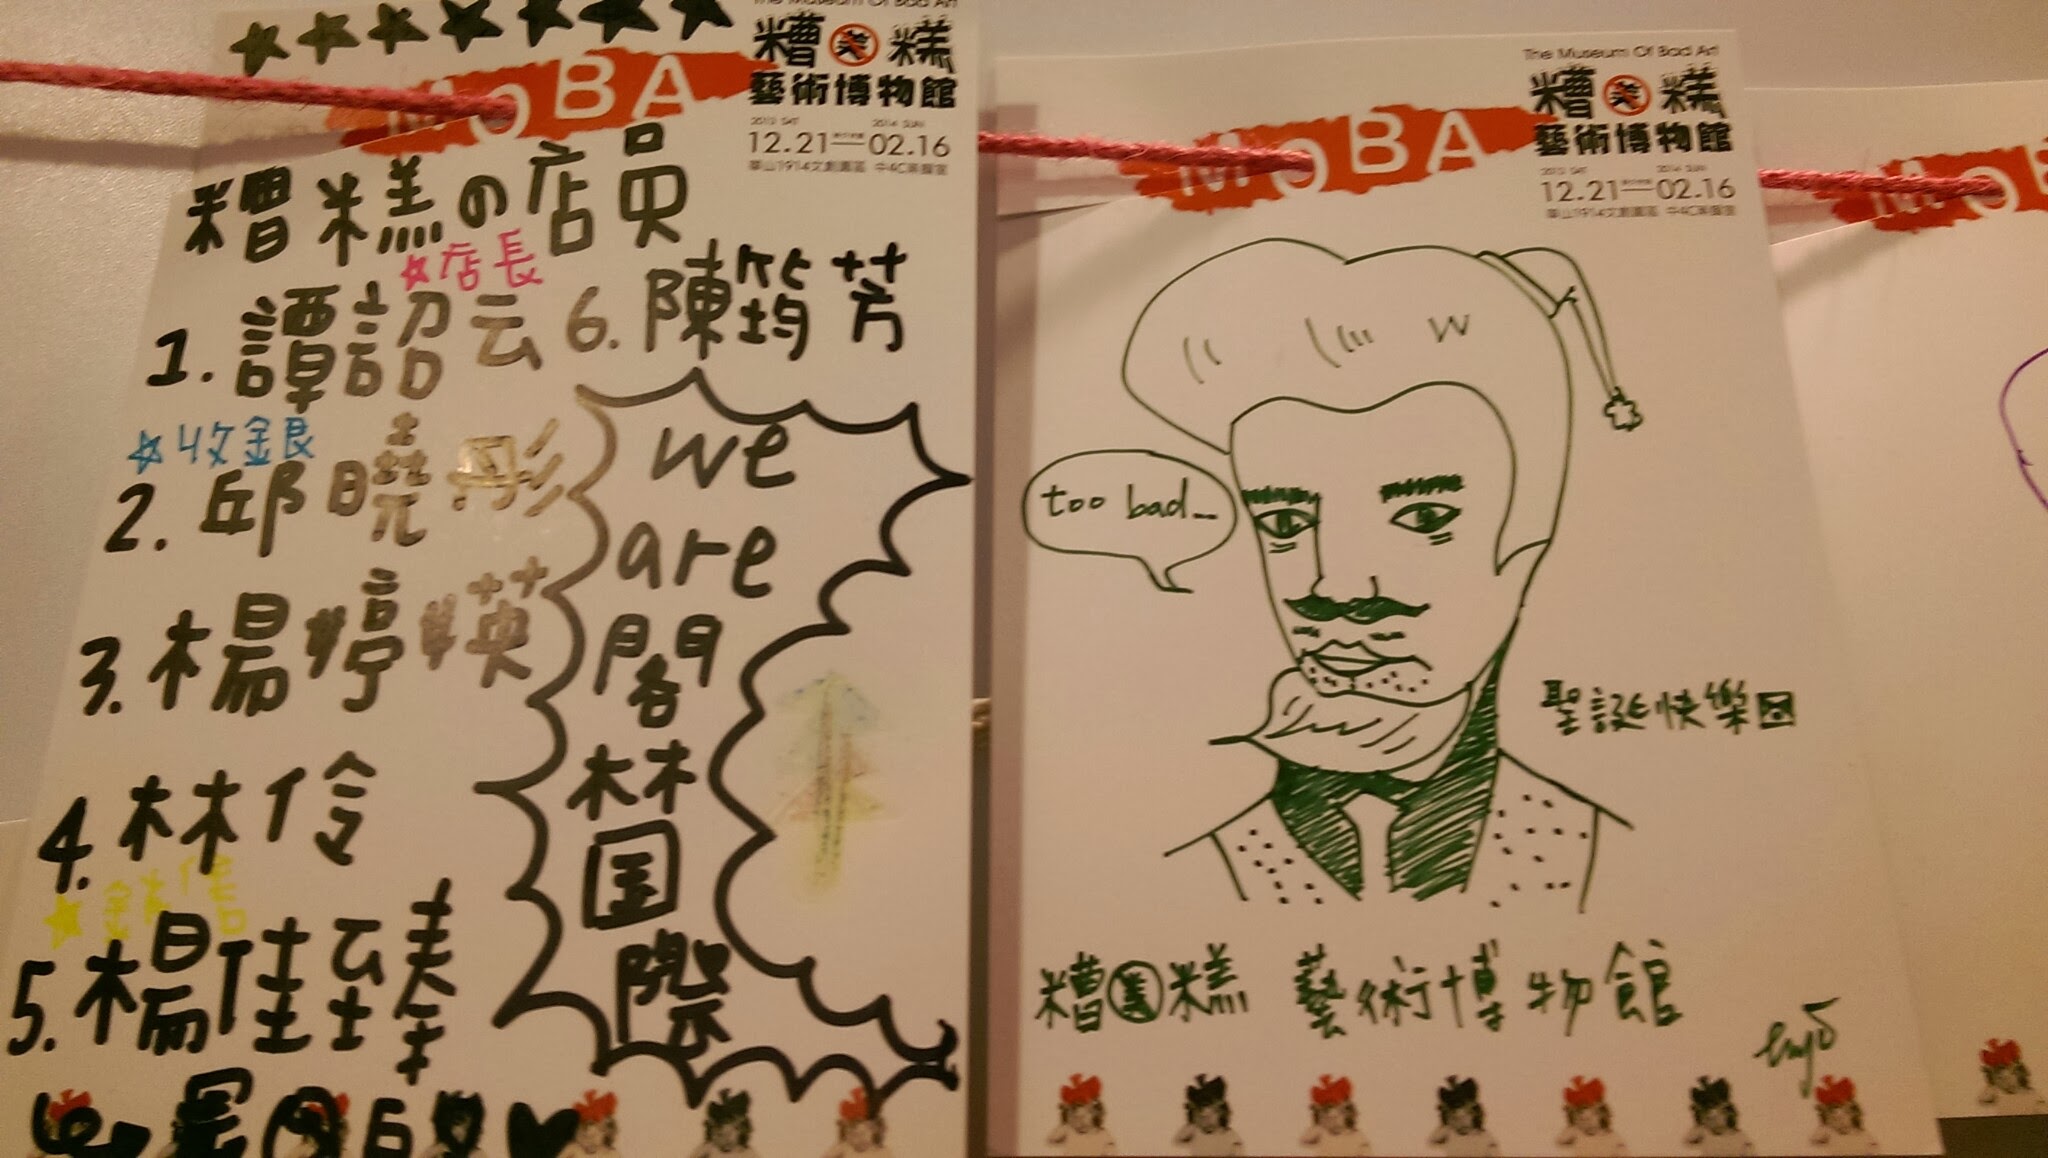 The Museum Of Bad Art
糟糕
藝術博物館
MoBA
2013 SAT 2014 SUN
12.21—02.16
華山1914文創園區 中4C展覽室
糟糕の店員
☆店長
1. 譚詔云
☆收銀
2. 邱曉彤
3. 楊婷媖
4. 林伶
5. 楊佳臻
6. 陳筠芳
we
are
閣
林
国
際
The Museum Of Bad Art
糟糕
藝術博物館
MoBA
2013 SAT 2014 SUN
12.21—02.16
華山1914文創園區 中4C展覽室
too bad...
聖誕快樂
糟糕 藝術博物館
MoB